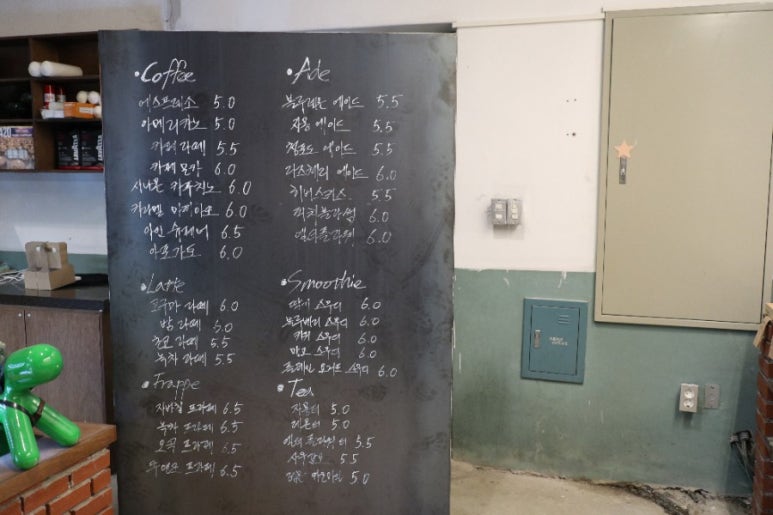 Coffee
에스프레소 5.0
아메리카노 5.0
카페 라떼 5.5
카페 모카 6.0
시나몬 카푸치노 6.0
카라멜 마끼아또 6.0
아인슈페너 6.5
아포가토 6.0
Latte
고구마 라떼 6.0
밤 라떼 5.0
초코 라떼 5.5
녹차 라떼 5.5
Frappe
자바칩 프라페 6.5
녹차 프라페 6.5
오곡 프라페 6.5
프라페 6.5
Ade
블루레몬 에이드 5.5
자몽 에이드 5.5
청포도 에이드 5.5
에이드 6.0
5.5
6.0
6.0
Smoothie
딸기 스무디 6.0
블루베리 스무디 6.0
키위 스무디 6.0
망고 스무디 6.0
플레인 요거트 스무디 6.0
Tea
자몽티 5.0
레몬티 5.0
티 5.5
5.5
5.0